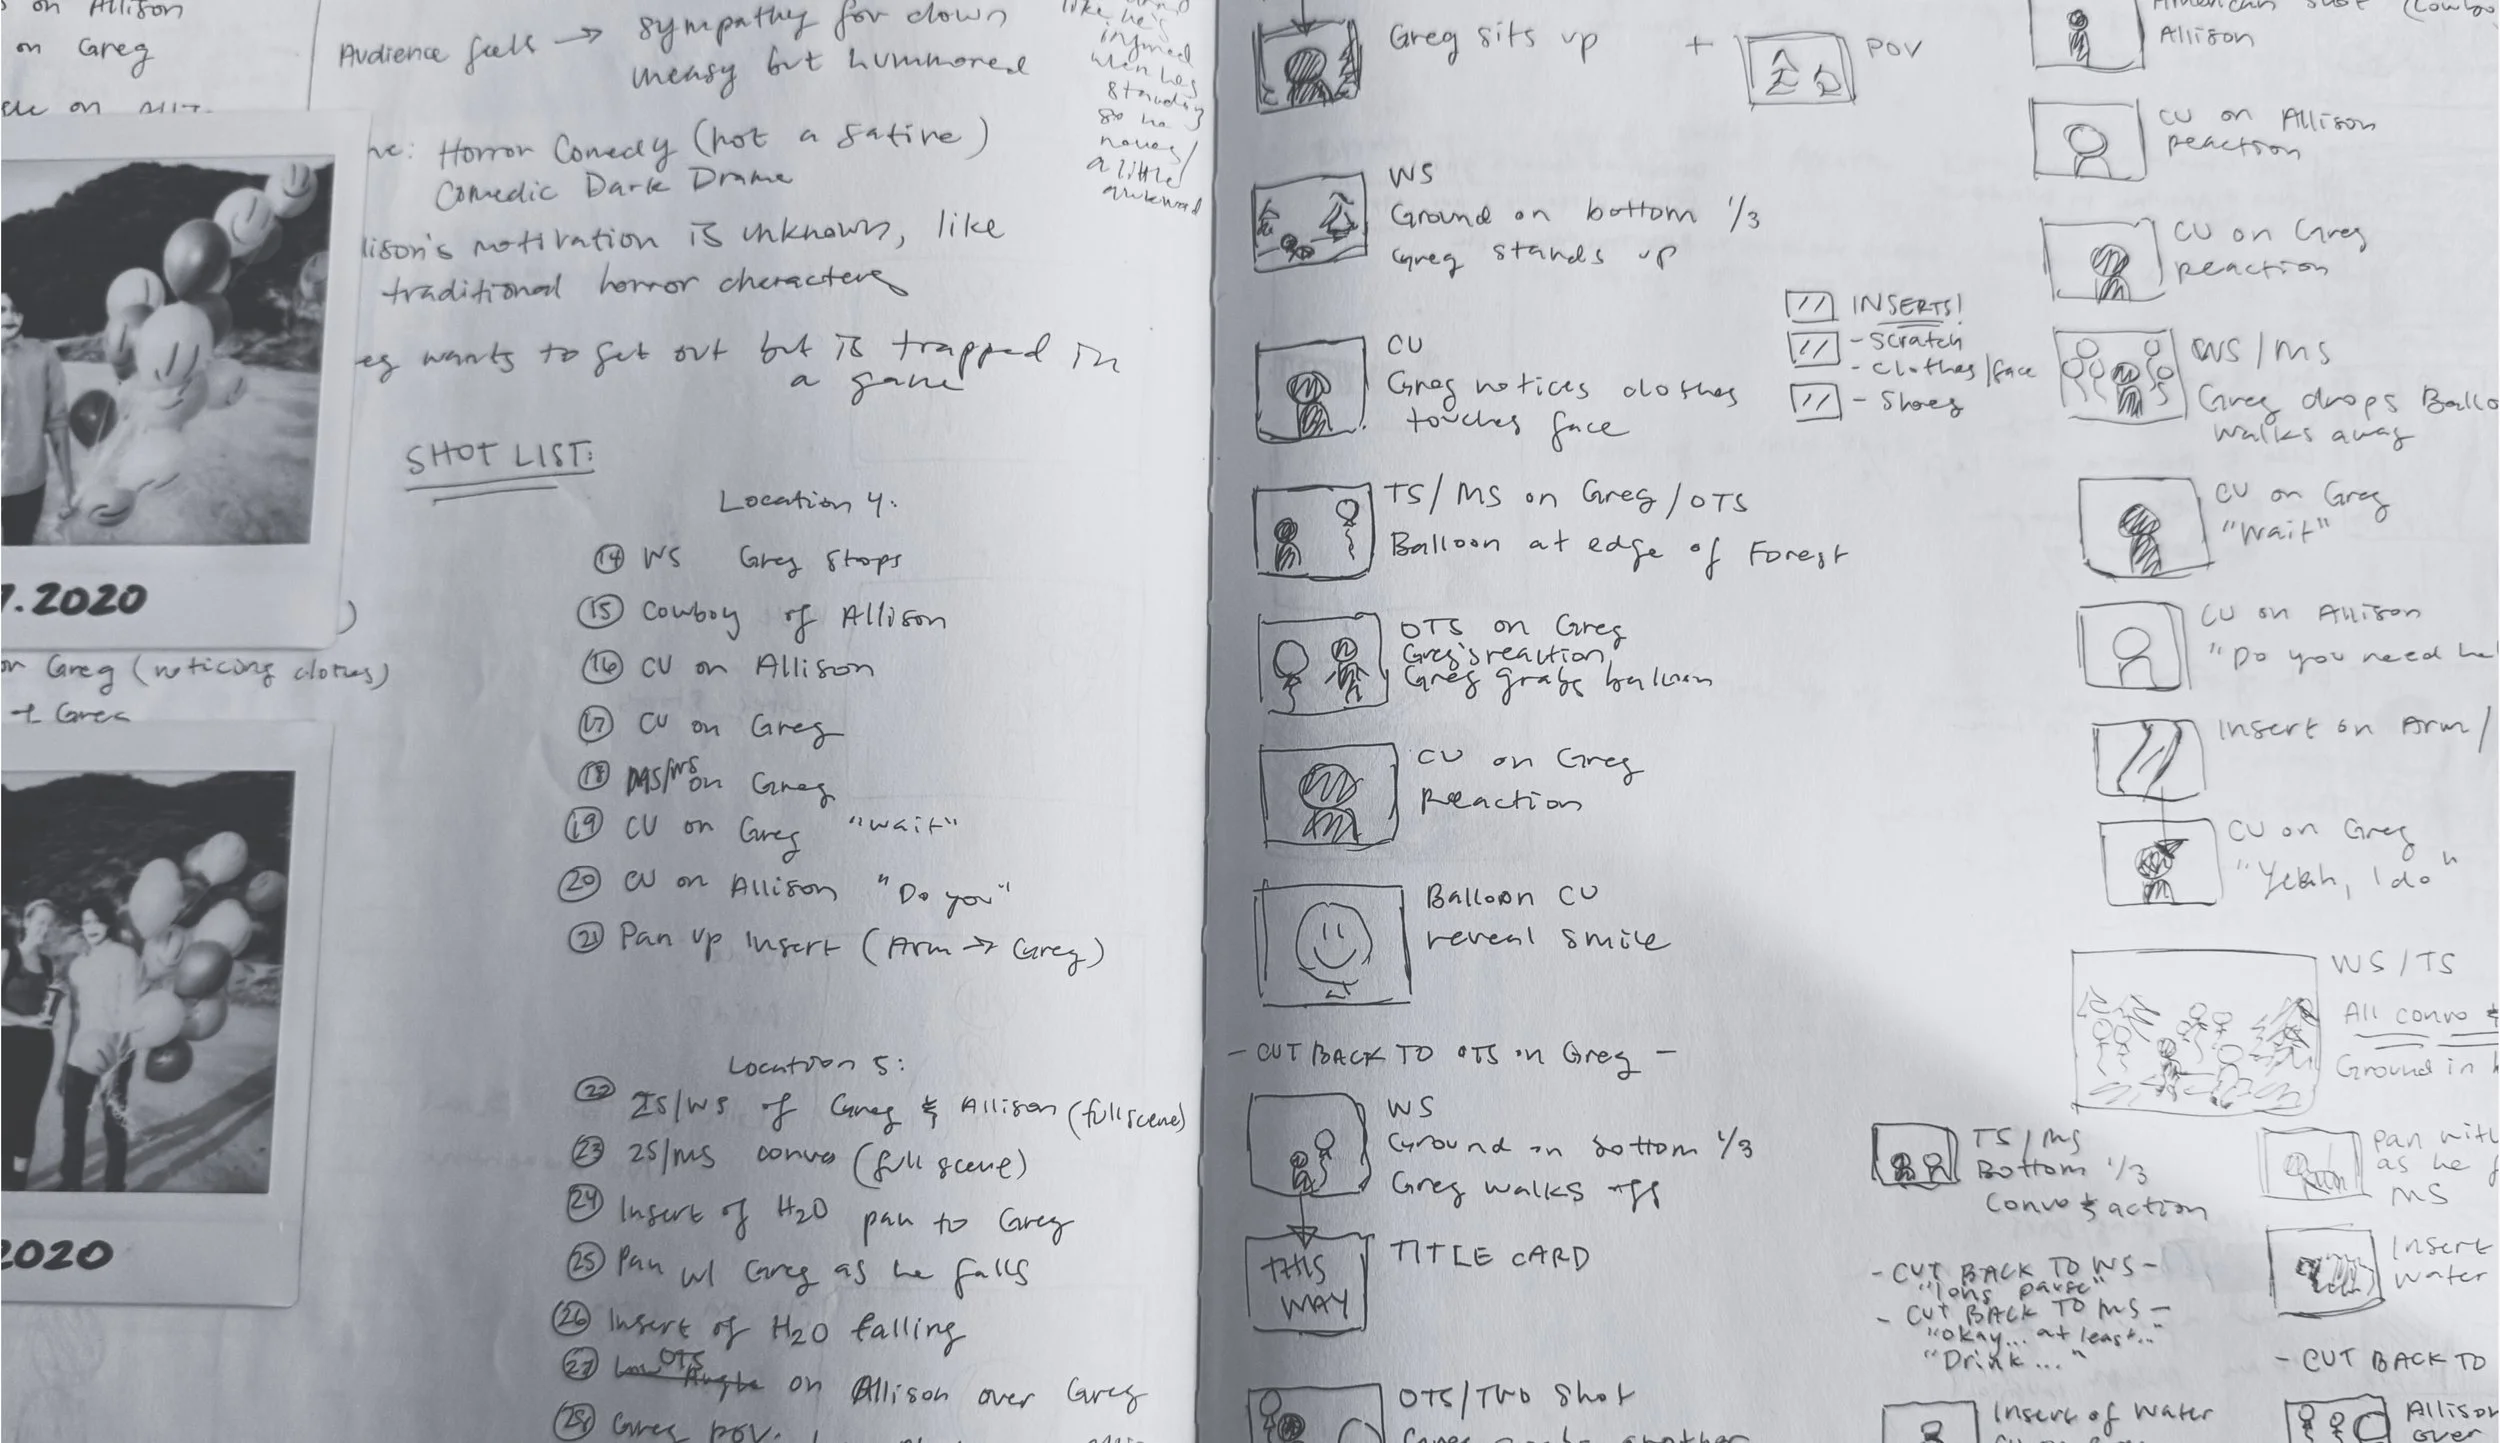 on Allison
on Greg
on
Audience feels → sympathy for clown
uneasy but hummored
like he's
injured
when he's
standing
so he
moves/
a little
awkward
Horror Comedy (not a satire)
Comedic Dark Drama
lison's motivation is unknown, like
traditional horror characters
eg wants to get out but is trapped in
a game
7.2020
on Greg (noticing clothes)
Greg
2020
SHOT LIST:
Location 4:
14 WS Greg stops
15 Cowboy of Allison
16 CU on Allison
17 CU on Greg
18 MS/WS on Greg
19 CU on Greg "wait"
20 CU on Allison "Do you"
21 Pan up Insert (Arm → Greg)
Location 5:
22 2S/WS of Greg & Allison (full scene)
23 2S/MS convo (full scene)
24 Insert of H2O pan to Greg
25 Pan w/ Greg as he falls
26 Insert of H2O falling
27 Low Angle OTS on Allison over Greg
28 Greg POV.
Greg sits up + POV
WS
Ground on bottom 1/3
Greg stands up
CU
Greg notices clothes
touches face
INSERTS!
- Scratch
- Clothes/face
- Shoes
TS/MS on Greg/OTS
Balloon at edge of Forest
OTS on Greg
Greg's reaction,
Greg grabs balloon
CU on Greg
Reaction
Balloon CU
reveal smile
- CUT BACK TO OTS on Greg -
WS
Ground on bottom 1/3
Greg walks off
THIS
WAY
TITLE CARD
OTS/TWO Shot
another
American Shot
Allison
CU on Allison
reaction
CU on Greg
reaction
WS/MS
Greg drops Ballo
walks away
CU on Greg
"Wait"
CU on Allison
"Do you need he
Insert on Arm/
CU on Greg
"Yeah, I do"
WS/TS
All convo &
Ground in
TS/MS
Bottom 1/3
Convo & action
- CUT BACK TO WS -
"long pause"
- CUT BACK TO MS -
"okay... at least.."
"Drink..."
Insert of Water
pan with
as he f
MS
Insert
Water
- CUT BACK TO
Allison
over